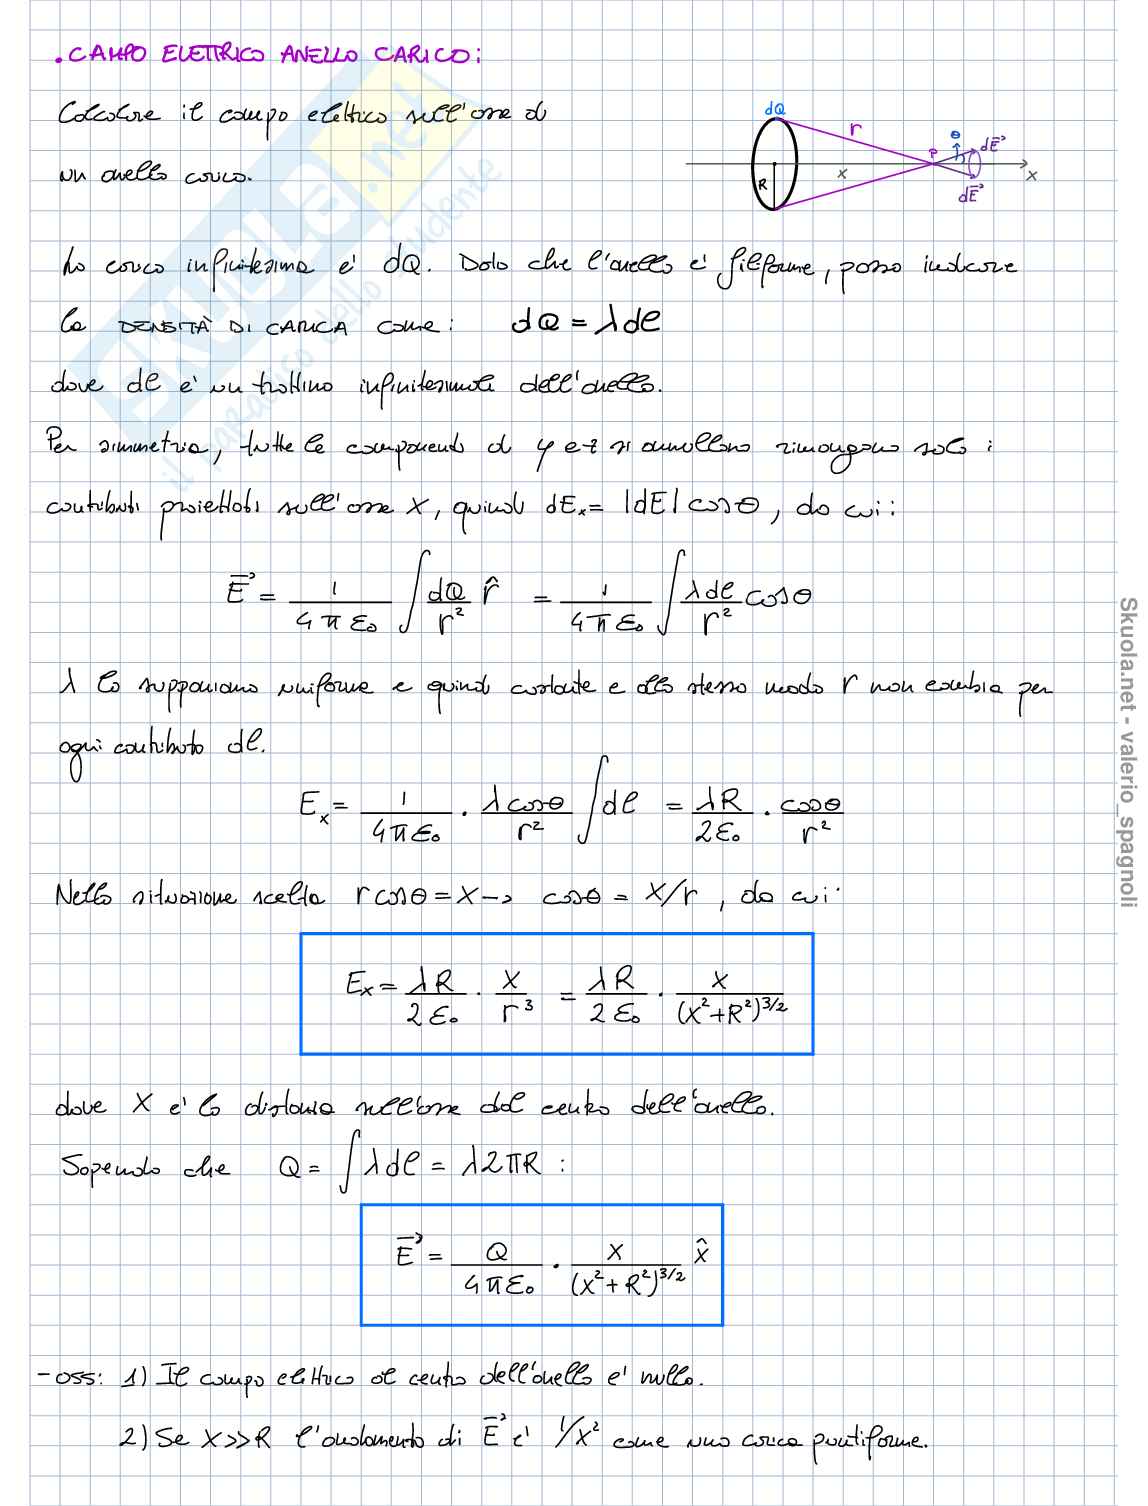 . CAMPO ELETTRICO ANELLO CARICO:
Calcolare il campo elettrico sull'asse di
un anello carico.
dQ
r
P
θ
dE⃗
dE⃗
R
x
x
La carica infinitesima e' dQ. Dato che l'anello e' filiforme, posso indicare
la DENSITÀ DI CARICA come: dQ = λdl
dove dl e' un trattino infinitesimale dell'anello.
Per simmetria, tutte le componenti di y e z si annullano rimangono solo i
contributi proiettati sull'asse x, quindi dEₓ = |dE| cosθ, da cui:
E⃗ = 1/(4πε₀) ∫ dQ/r² r̂ = 1/(4πε₀) ∫ λdl/r² cosθ
λ lo supponiamo uniforme e quindi costante e allo stesso modo r non cambia per
ogni contributo dl.
Eₓ = 1/(4πε₀) · λcosθ/r² ∫ dl = λR/(2ε₀) · cosθ/r²
Nella situazione scelta r cosθ = x → cosθ = x/r, da cui:
Eₓ = λR/(2ε₀) · x/r³ = λR/(2ε₀) · x/(x²+R²)^3/2
dove x e' la distanza sull'asse dal centro dell'anello.
Sapendo che Q = ∫ λdl = λ2πR :
E⃗ = Q/(4πε₀) · x/(x²+R²)^3/2 x̂
- OSS: 1) Il campo elettrico al centro dell'anello e' nullo.
2) Se x>>R l'andamento di E⃗ e' 1/x² come una carica puntiforme.
SKUOLA.net
il paradiso dello studente
Skuola.net - valerio_spagnoli